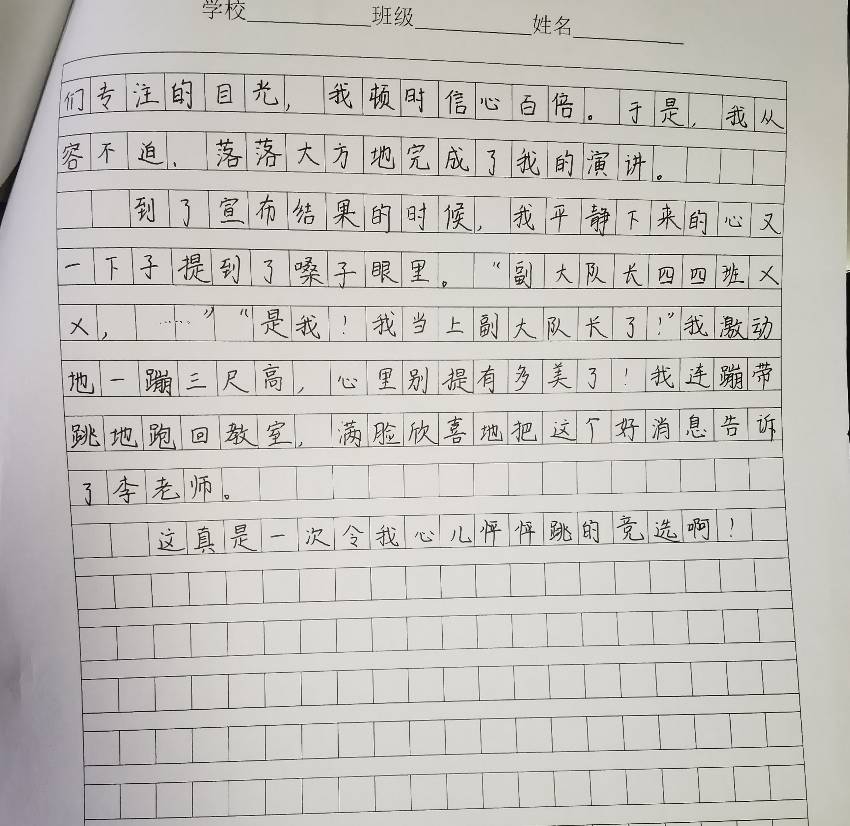 学校 班级 姓名
们专注的目光，我顿时信心百倍。于是，我从
容不迫、落落大方地完成了我的演讲。
到了宣布结果的时候，我平静下来的心又
一下子提到了嗓子眼里。“副大队长四四班×
×，……”“是我！我当上副大队长了！”我激动
地一蹦三尺高，心里别提有多美了！我连蹦带
跳地跑回教室，满脸欣喜地把这个好消息告诉
了李老师。
这真是一次令我心儿怦怦跳的竞选啊！